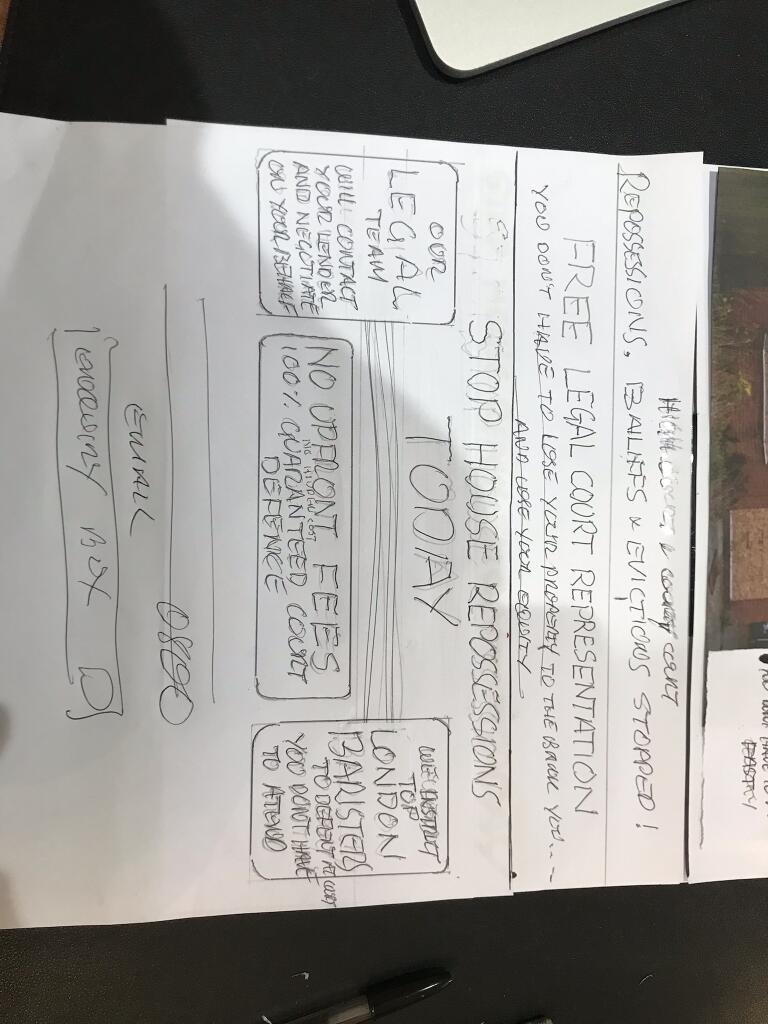 YOU DON'T HAVE TO
HIGH COURT & COUNTY COURT
REPOSSESSIONS, BAILIFFS & EVICTIONS STOPPED!
FREE LEGAL COURT REPRESENTATION
YOU DON'T HAVE TO LOSE YOUR PROPERTY TO THE BANK YOU....
AND LOSE YOUR EQUITY
STOP HOUSE REPOSSESSIONS
TODAY
OUR
LEGAL
TEAM
WILL CONTACT
YOUR LENDER
AND NEGOTIATE
ON YOUR BEHALF
NO UPFRONT FEES
NO HIDDEN COST
100% GUARANTEED COURT
DEFENCE
WE INSTRUCT
TOP
LONDON
BARISTERS
TO DEFEND AT COURT
YOU DON'T HAVE
TO ATTEND
0800
EMAIL
ENQUIRY BOX